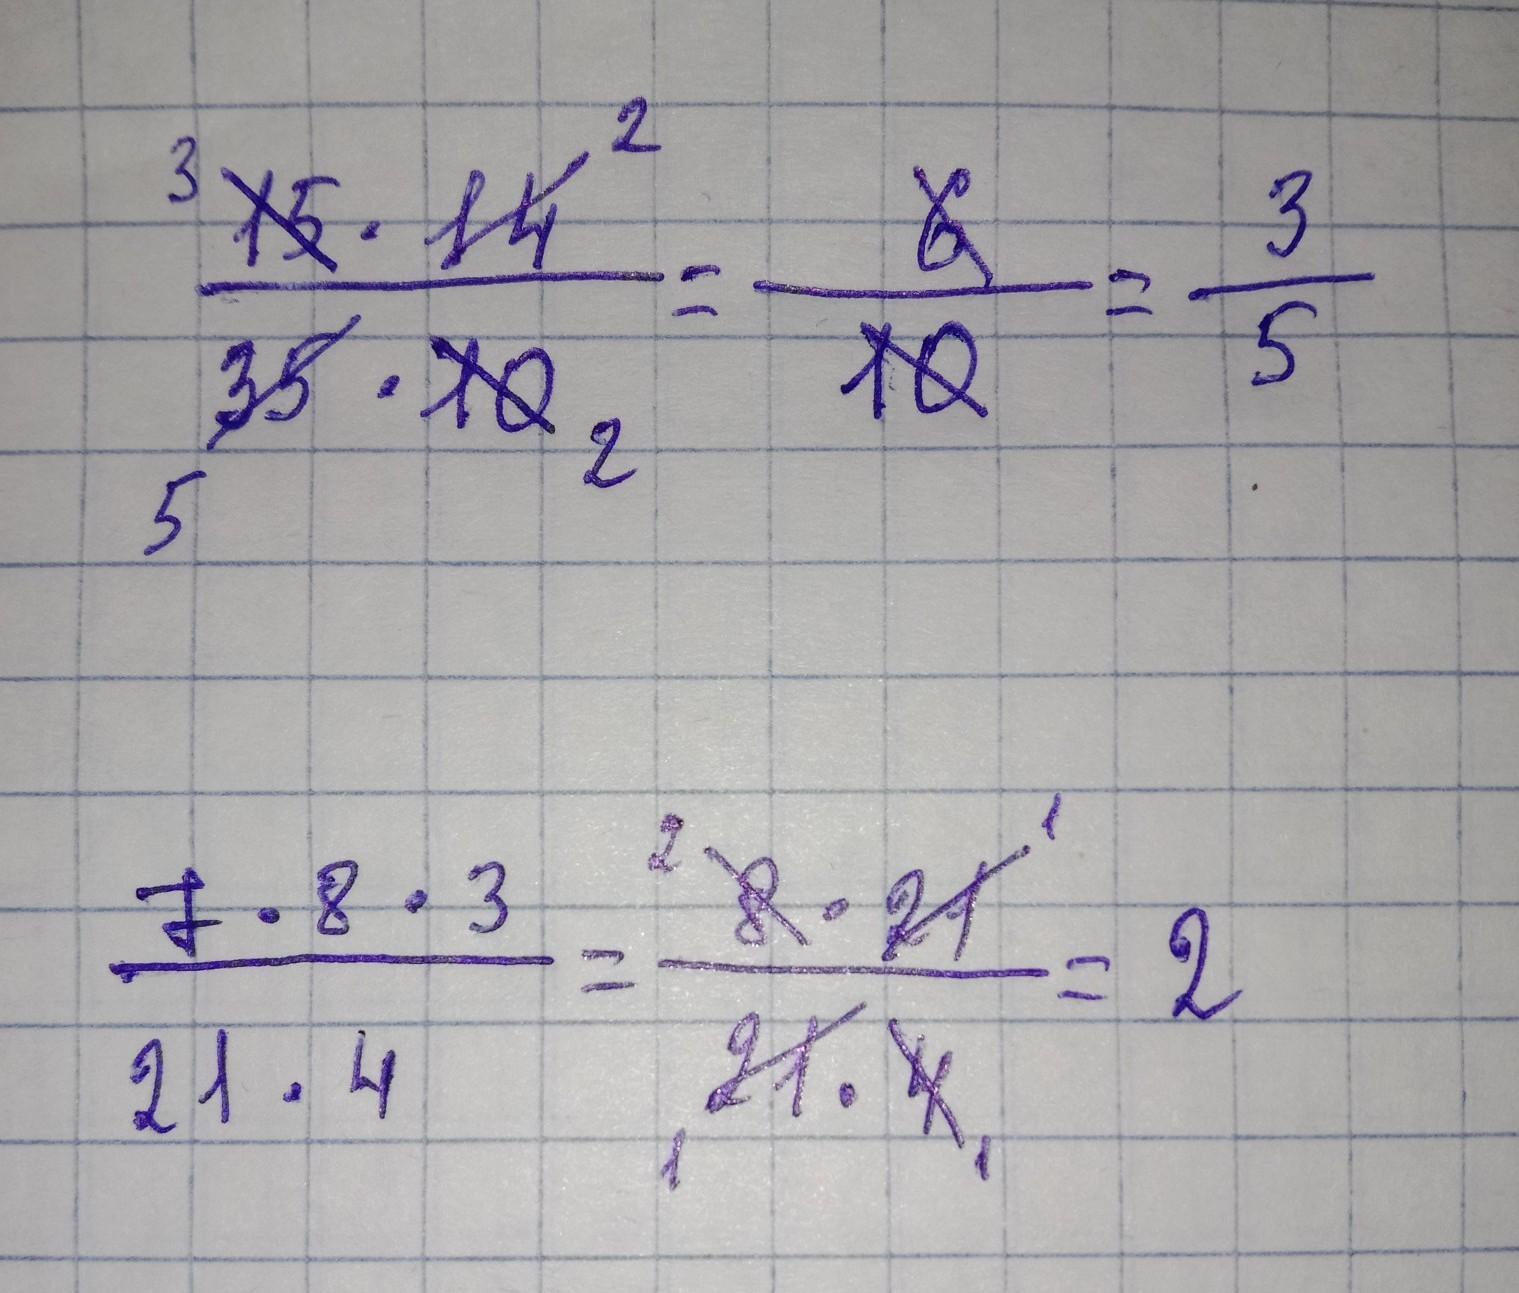 3 15 · 14 2 / 35 · 10 5 2 = 6 / 10 = 3 / 5
7 · 8 · 3 / 21 · 4 = 2 8 · 21 1 / 1 21 · 4 1 = 2